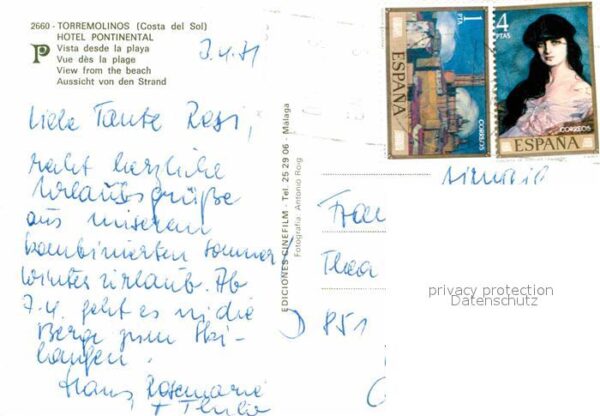 2660 - TORREMOLINOS (Costa del Sol)
HOTEL PONTINENTAL
P
Vista desde la playa
Vue dès la plage
View from the beach
Aussicht von den Strand
3.4.71
Liebe Tante Resi,
recht herzliche
Urlaubsgrüße
aus unserem
kombinierten Sommer
Winterurlaub. Ab
7.4. geht es in die
Berge zum Ski-
laufen.
Hans, Rosemarie
+
EDICIONES CINEFILM - Tel. 25 29 06 - Málaga
Fotografía: Antonio Roig
1 PTA
ESPAÑA
CORREOS
4 PTAS
CORREOS
ESPAÑA
Frau
Thea
D 851
privacy protection
Datenschutz